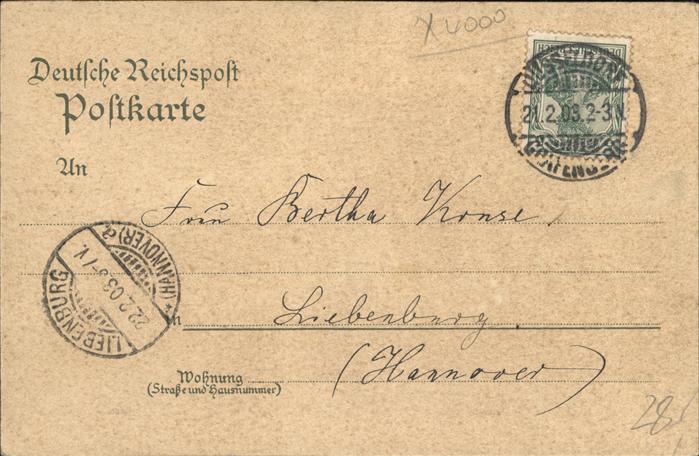 X 4000
Deutsche Reichspost
Postkarte
DÜSSELDORF
21.2.03.2-3N.
GRAFENBERG
An
Frau Bertha Konse.
LIEBENBURG
22.2.03.
(HANNOVER) a
in Liebenburg
(Hannover)
Wohnung
(Straße und Hausnummer)
28